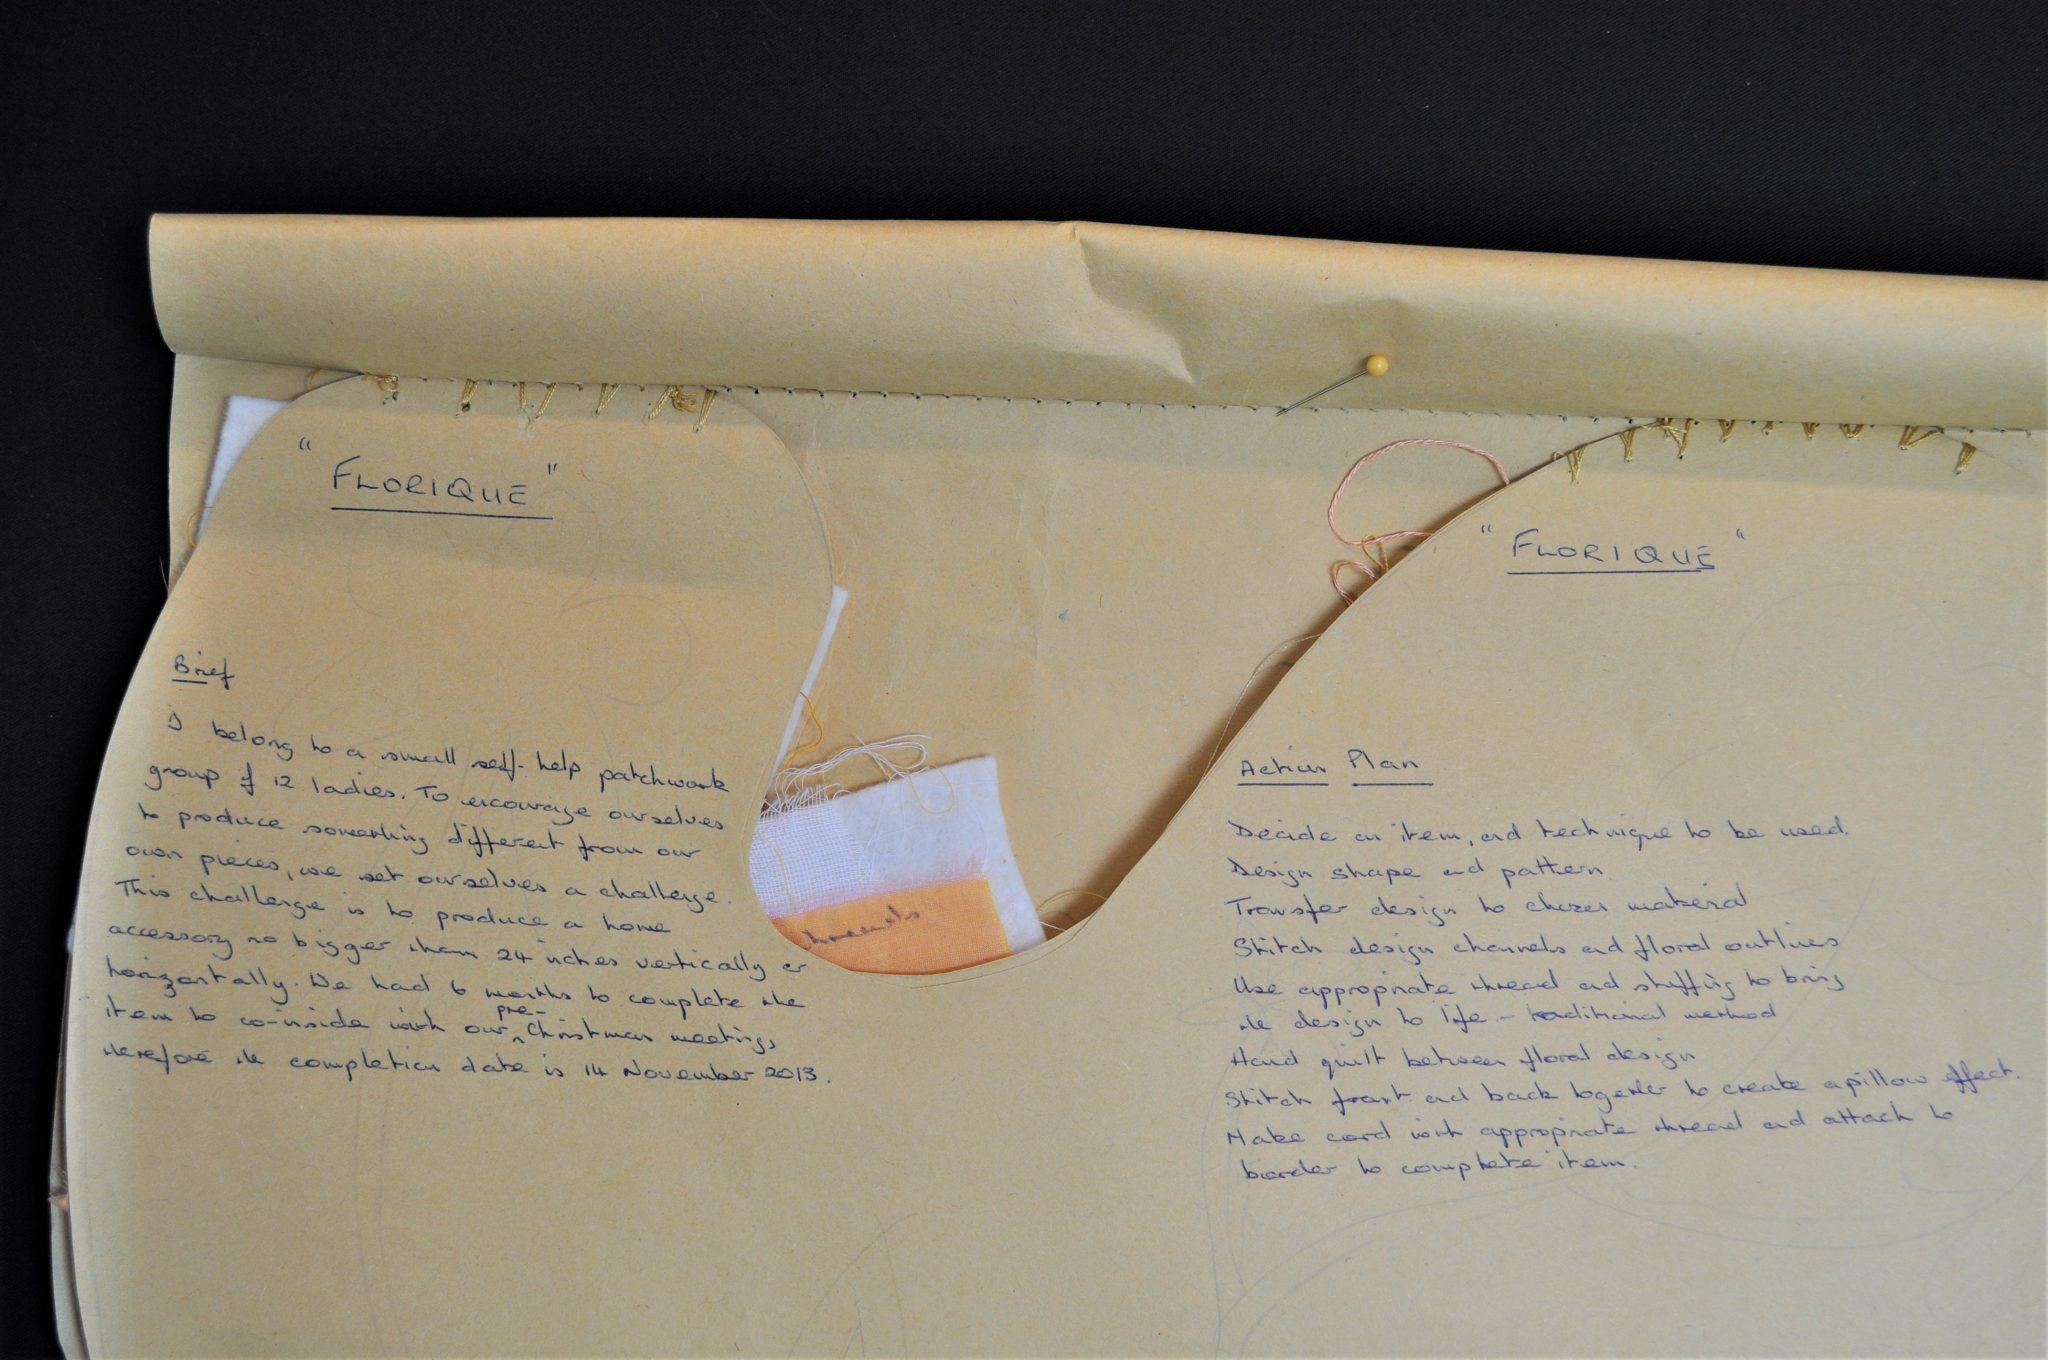 "FLORIQUE"
Brief
I belong to a small self-help patchwork
group of 12 ladies. To encourage ourselves
to produce something different from our
own pieces, we set ourselves a challenge.
This challenge is to produce a home
accessory no bigger than 24 inches vertically or
horizontally. We had 6 months to complete the
item to co-inside with our pre-Christmas meeting,
therefore the completion date is 14 November 2013.
threads
"FLORIQUE"
Action Plan
Decide on item, and technique to be used.
Design shape and pattern
Transfer design to chosen material
Stitch design channels and floral outlines
Use appropriate thread and stuffing to bring
the design to life - traditional method
Hand quilt between floral design
Stitch front and back together to create a pillow effect.
Make cord with appropriate thread and attach to
border to complete item.